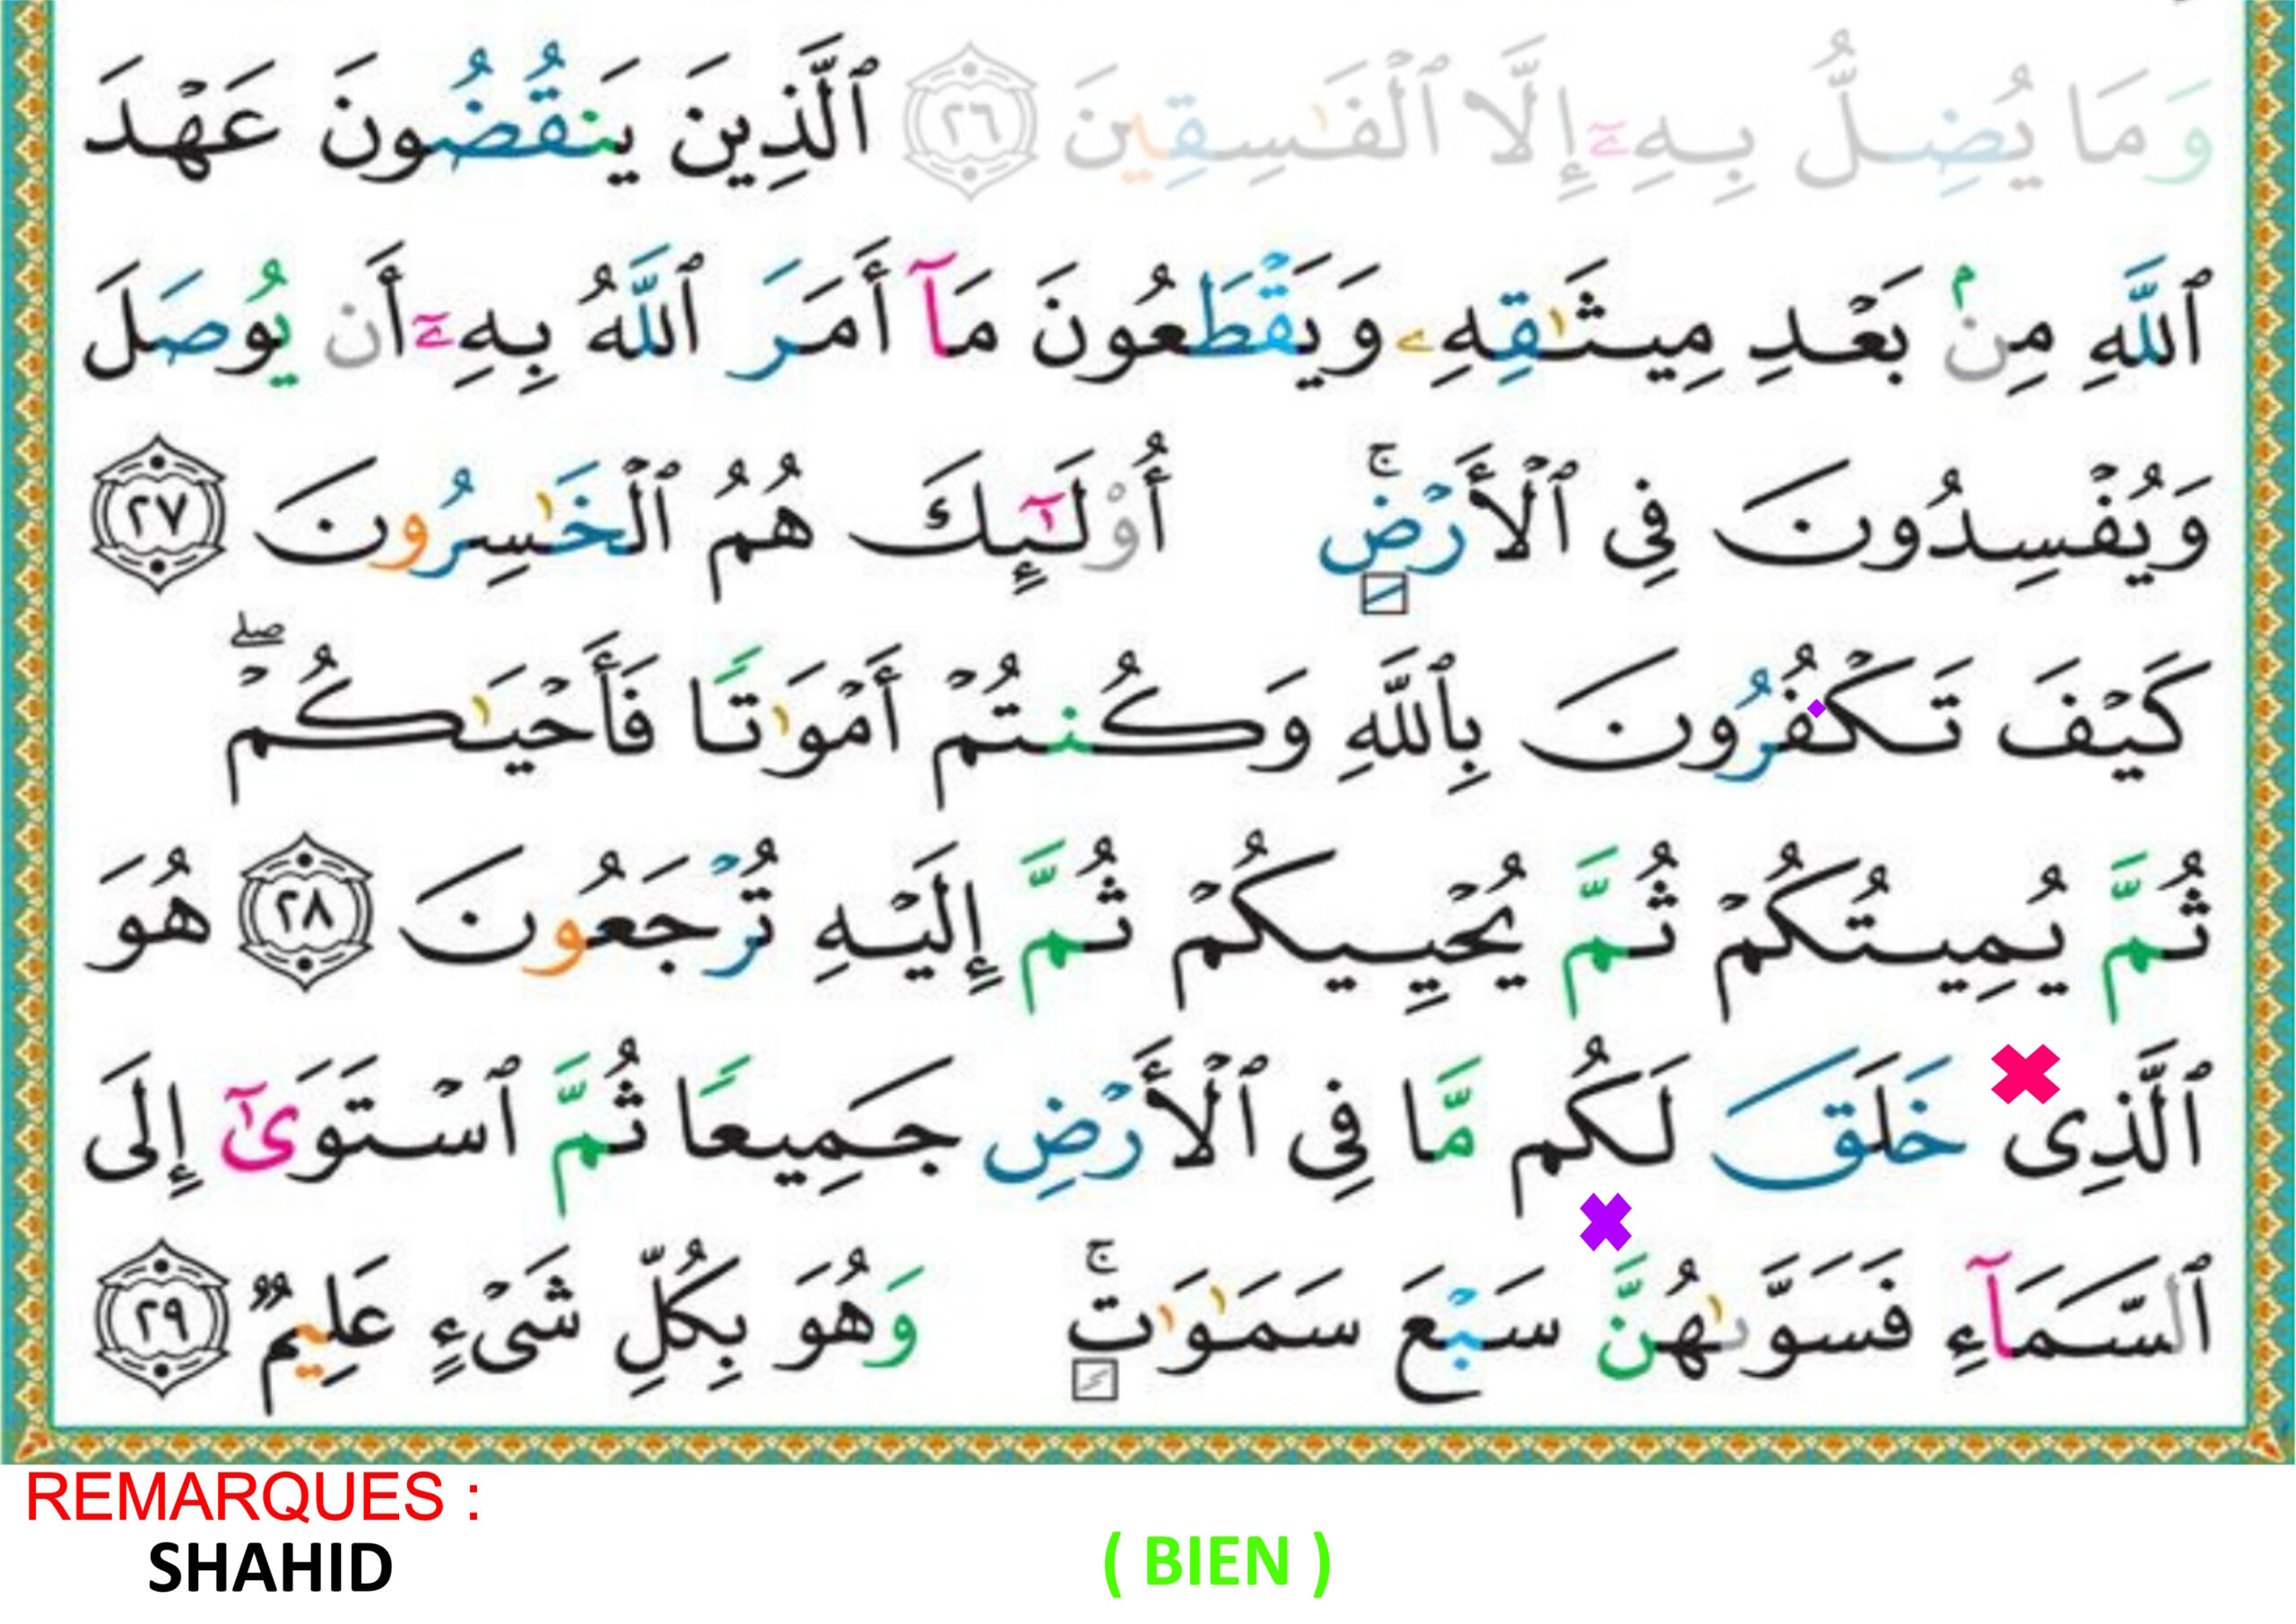 وَمَا يُضِلُّ بِهِۦٓ إِلَّا ٱلْفَـٰسِقِينَ ٢٦ ٱلَّذِينَ يَنقُضُونَ عَهْدَ
ٱللَّهِ مِنۢ بَعْدِ مِيثَـٰقِهِۦ وَيَقْطَعُونَ مَآ أَمَرَ ٱللَّهُ بِهِۦٓ أَن يُوصَلَ
وَيُفْسِدُونَ فِى ٱلْأَرْضِ ۚ أُو۟لَـٰٓئِكَ هُمُ ٱلْخَـٰسِرُونَ ٢٧
كَيْفَ تَكْفُرُونَ بِٱللَّهِ وَكُنتُمْ أَمْوَٰتًا فَأَحْيَـٰكُمْ ۖ
ثُمَّ يُمِيتُكُمْ ثُمَّ يُحْيِيكُمْ ثُمَّ إِلَيْهِ تُرْجَعُونَ ٢٨ هُوَ
ٱلَّذِى خَلَقَ لَكُم مَّا فِى ٱلْأَرْضِ جَمِيعًا ثُمَّ ٱسْتَوَىٰٓ إِلَى
ٱلسَّمَآءِ فَسَوَّىٰهُنَّ سَبْعَ سَمَـٰوَٰتٍ ۚ وَهُوَ بِكُلِّ شَىْءٍ عَلِيمٌ ٢٩
REMARQUES :
SHAHID ( BIEN )